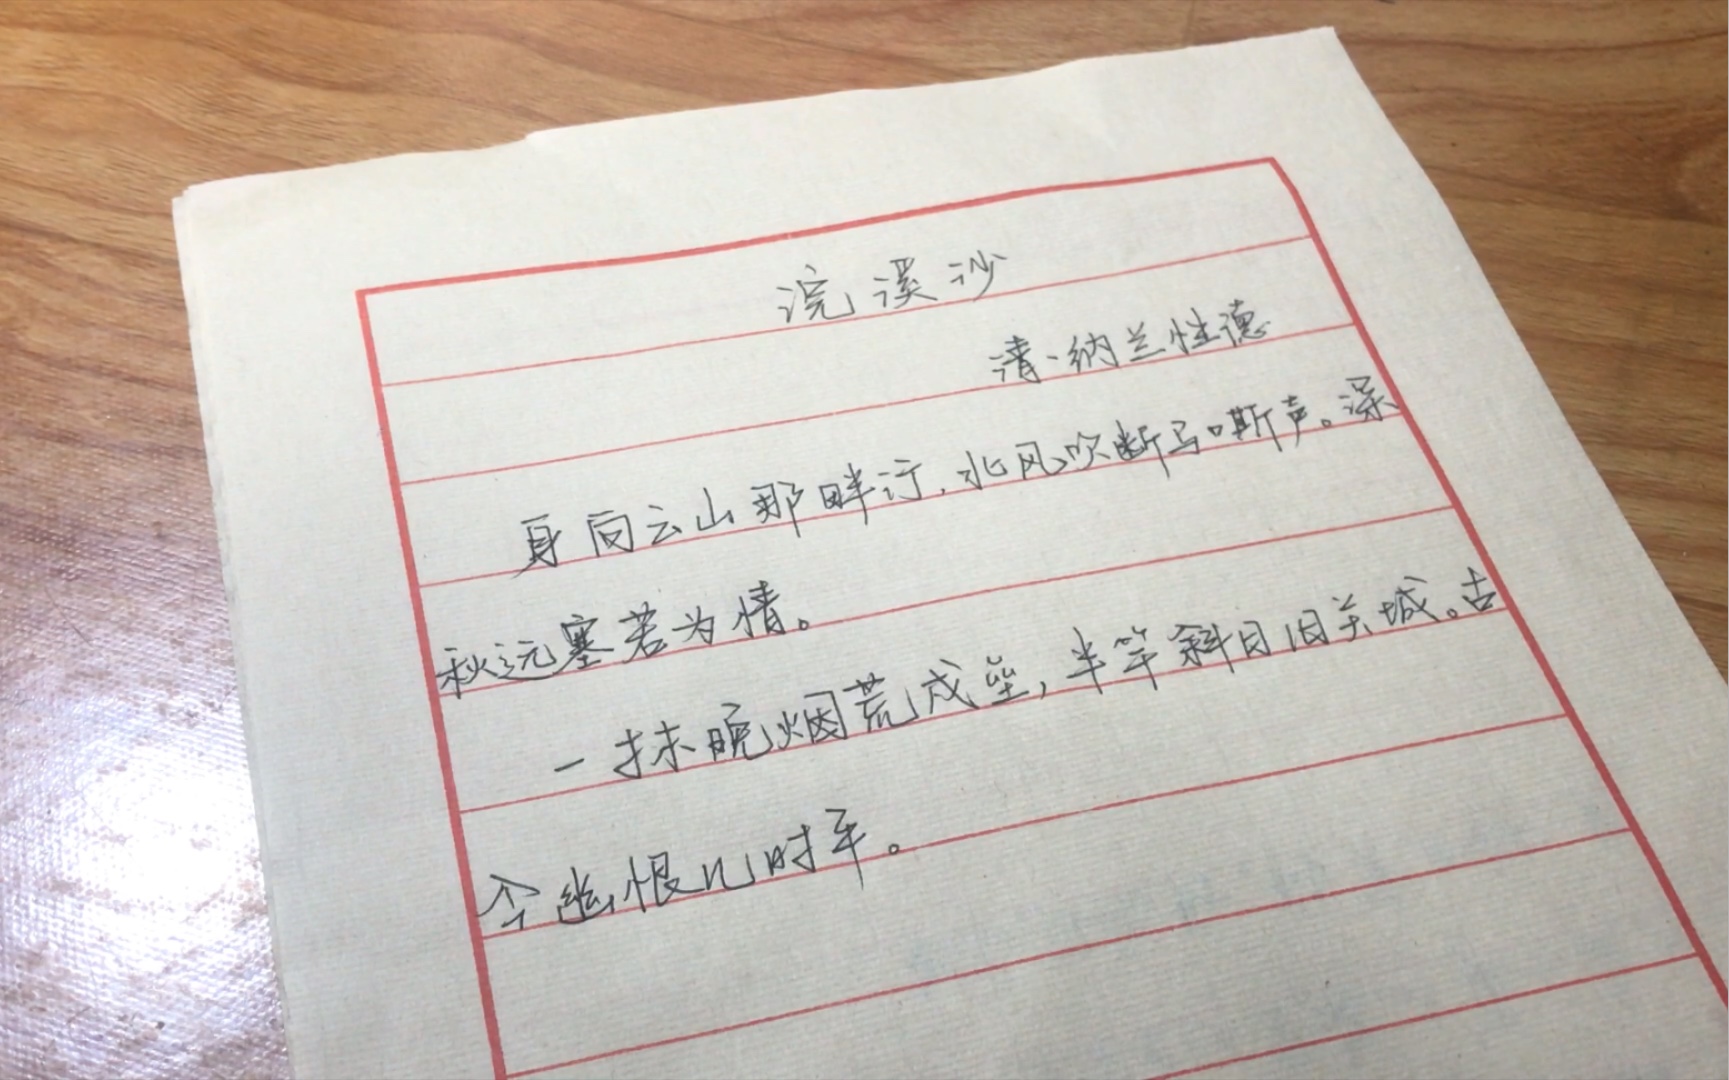 浣溪沙
清·纳兰性德
身向云山那畔行，北风吹断马嘶声。深
秋远塞若为情。
一抹晚烟荒戍垒，半竿斜日旧关城。古
今幽恨几时平。